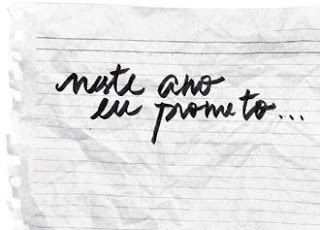 neste ano
eu prometo...